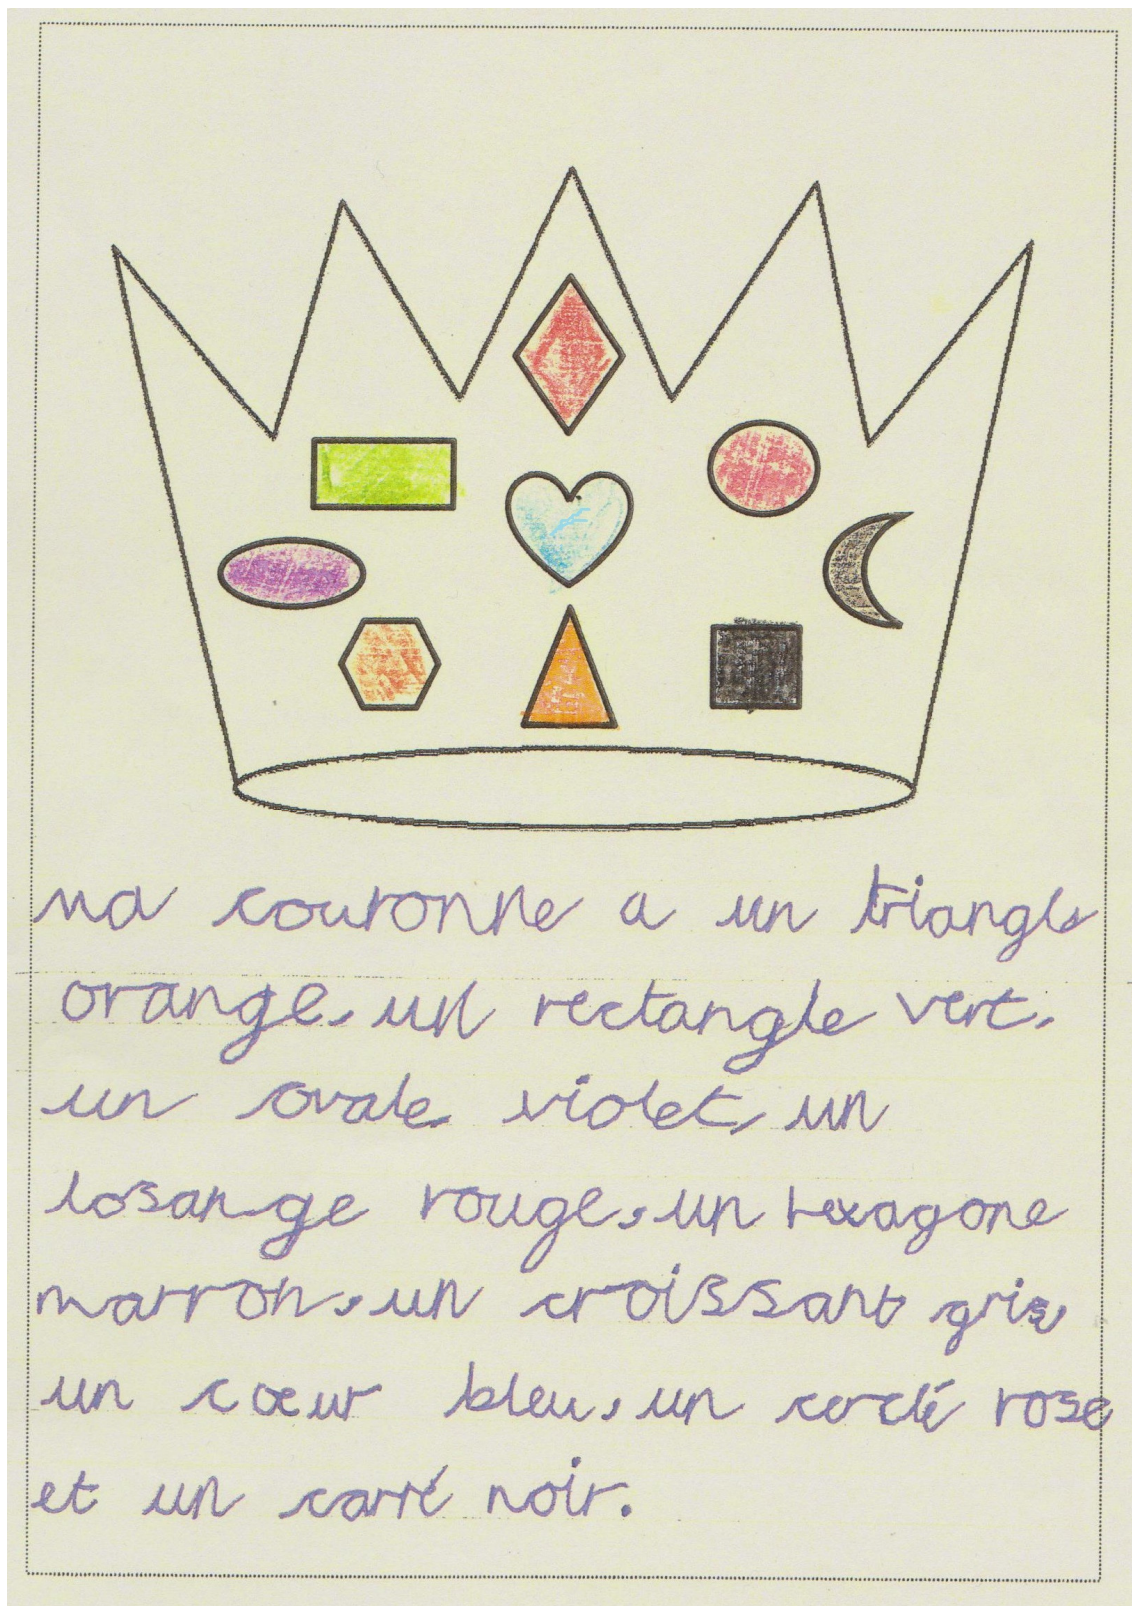 ma couronne a un triangle
orange, un rectangle vert,
un ovale violet, un
losange rouge, un hexagone
marron, un croissant gris,
un cœur bleu, un cerclé rose
et un carré noir.